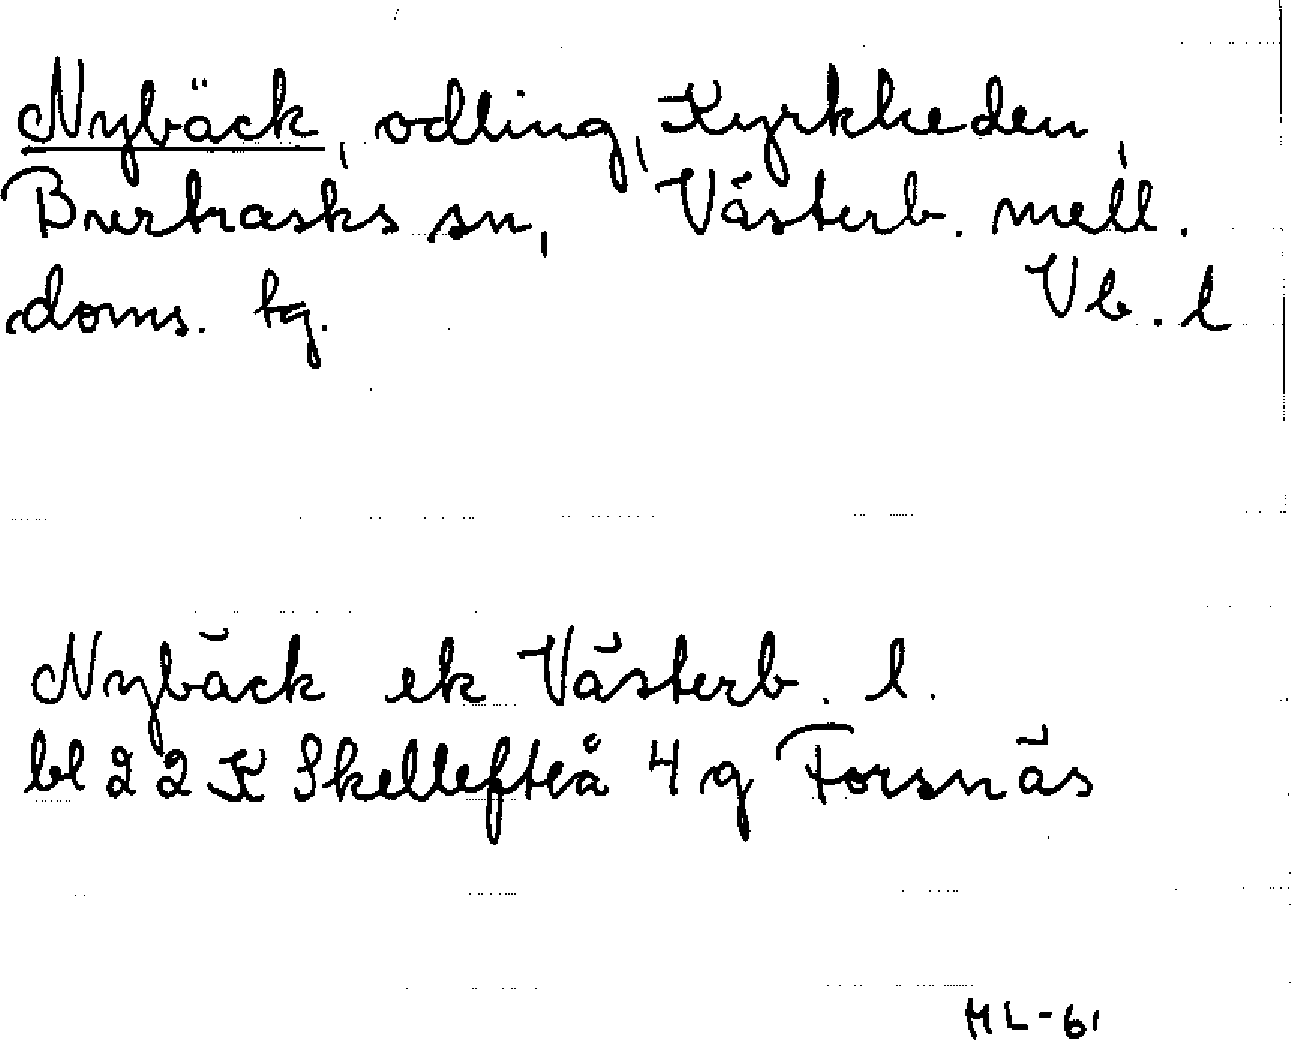 Nybäck, odling, Kyrkheden,
Burträsks sn, Västerb. mell.
doms. tg. Vb. l
Nybäck ek Västerb. l.
bl 22 K Skellefteå 4 g Forsnäs
HL-61